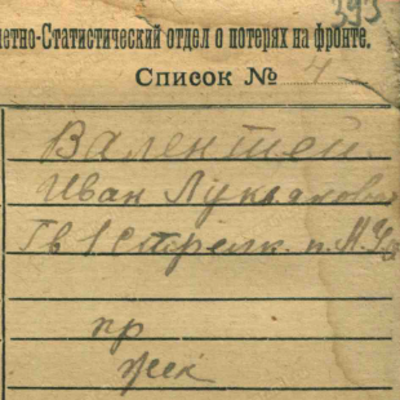 393
четно-Статистическій отдел о потерях на фронте.
Список № 4
Валентей
Иван Лукьянов
Гв 1 Стрелк. п.
пр